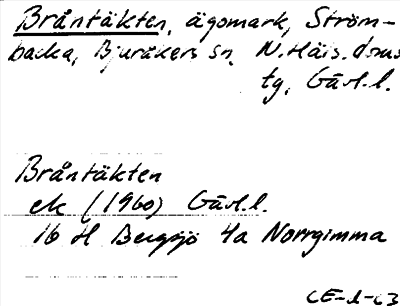 Bråntäkten, ägomark, Ström-
backa, Bjuråkers sn, N. Häls. doms
tg, Gävl.l.
Bråntäkten
ek (1960) Gävl.l.
16 H Bergsjö 4a Norrgimma
CE-1-63